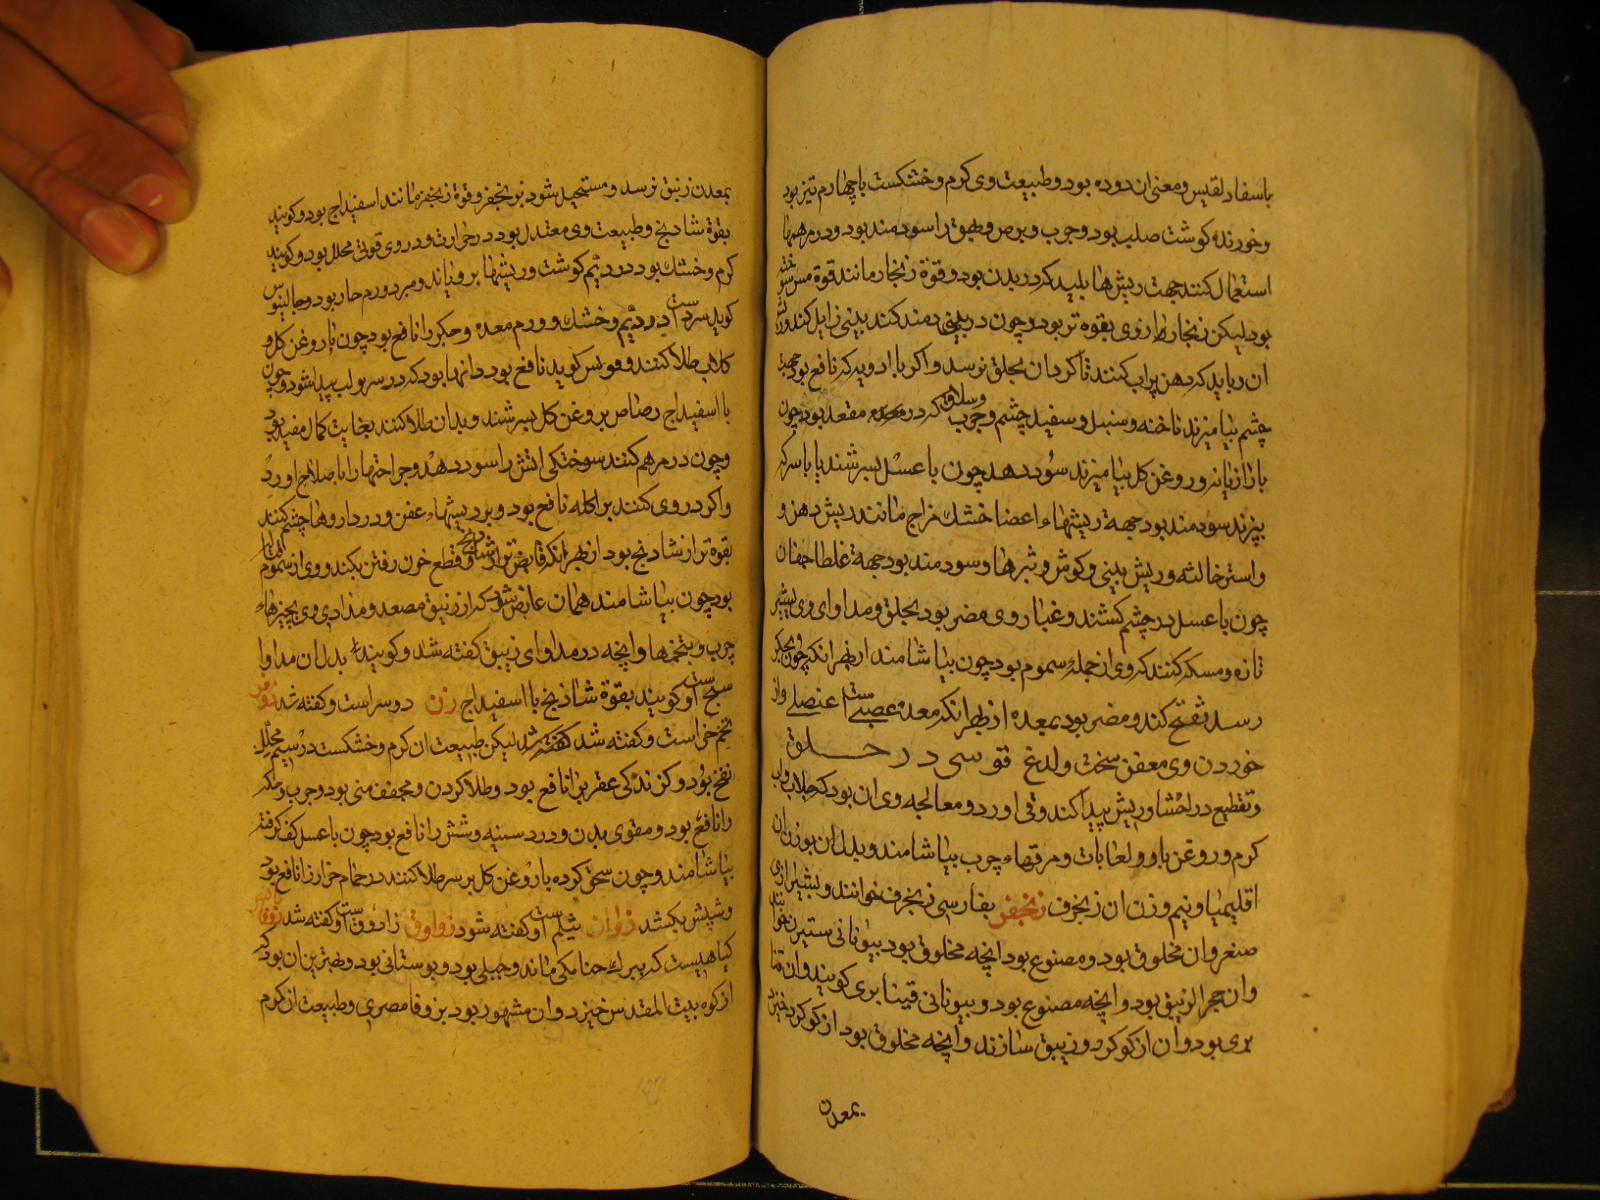 باسفاد لقیس و معنی ان دوده بود و طبیعت وی کرم و خشکست با چهارم تیز بود
و خورنده کوشت صلب بود و جرب و برص و بهق را سودمند بود و در مرهمها
استعمال کنند جهت ریش‌ها پلید که در بدن بود و قوة زنجار مانند قوة مس سوخته
بود لیکن زنجار از وی بقوه تر بود و چون در بینی دمند کند بینی زایل کند
ان و باید که دهن پر اب کنند تا کرد ان بحلق نرسد و اکر با ادویه که نافع بود جهت
چشم بیامیزند ناخنه و سنبل و سفید چشم و جرب و سلاق که در مقعد بود چون
با رازیانه و روغن کل بیامیزند سود دهد چون با عسل بسرشند یا با سرکه
بپزند سودمند بود جهة ریشهاء اعضا خشک مزاج مانند ریش دهن و
و استرخا لثه و ریش بینی و کوش و ثبرها و سودمند بود جهة غلظ اجفان
چون با عسل در چشم کشند و غبار وی مضر بود بحلق و مداوای وی بشیر
تازه و مسکه کنند که وی از جمله سموم بود چون بیاشامند از بهر انکه چون بجکر
رسد تفتح کند و مضر بود بمعده از بهر انکه معده عصبی است
خوردن وی معفن سخت و لدغ قوسی در حلق
و تقطیع در احشا و ریش پیدا کند و قی اورد و معالجه وی ان بود که جلاب و اب
کرم و روغن باو و لعابات و مرقهاء چرب بیاشامند و بدل ان بوزن ان
اقلیمیا و نیم وزن ان زنجرف زنجفر بفارسی زنجرف خوانند و بشیرازی
صنغر و ان مخلوق بود و مصنوع بود انچه مخلوق بود بیونانی
و ان حجر الزنیق بود و انچه مصنوع بود و بیونانی قینابری کویند و ان
بری بود و ان از کوکرد و زیبق سازند و انچه مخلوق بود از کوکرد خیزد
بمعدن
بمعدن زنیق نرسد و مستحیل شود بزنجفر و قوة زنجفر مانند اسفیداج بود و کویند
بقوة شادنج و طبیعت وی معتدل بود در حرارت و در وی قوتی محلل بود و کویند
کرم و خشک بود در دیّم کوشت و ریشها برویاند و مبرد ورم حار بود و جالینوس
کوید سردست در دیّم و خشک و ورم معده و جکر را نافع بود چون با روغن کل و
کلاب طلا کنند و فولس کوید نافع بود دانها بود که در سر و لب پیدا شود و چون
با اسفیداج رصاص بروغن کل بسرشند و بدان طلا کنند بغایت کمال مفید بود
و چون در مرهم کنند سوختکی اتش را سود دهد و جراحتها را با صلاح اورد
و اکر در وی کنند بر اکله نافع بود و بر ریشهاء عفن و در داروها چشم کنند
بقوة تر از شادنج بود از بهر انکه قابض تر از شادنج و قطع خون رفتن بکند و وی از سموم
بود چون بیاشامند همان عارض شود که از زنیق مصعد و مداوی وی بچیزهاء
چرب و بتخمها و انچه در مداوای زیبق کفته شد و کویند بدل ان مداوا
سنج است و کویند بقوة شادنج با اسفیداج زن دوسراست و کفته شد
تخم خراست و کفته شد لیکن طبیعت ان کرم و خشکست در سیّم محلل
نفخ بود و کزندکی عقرب را نافع بود و طلا کردن و مجفف منی بود و جرب و حکه
را نافع بود و مقوی بدن و درد سینه و شش را نافع بود چون با عسل کف کرفته
بیاشامند و چون سحق کرده با روغن کل بر سر طلا کنند در حمام خزاز را نافع بود
و شپش بکشد زوان شیلم است و کفته شود زواوق زاووق است و کفته شد زوفا یابس
کیاهیست که ببرک حنا مکی ماند و جبلی بود و بوستانی بود و بهترین ان بود که
از کوه بیت المقدس خیزد و ان مشهور بود بزوفا مصری و طبیعت ان کرم